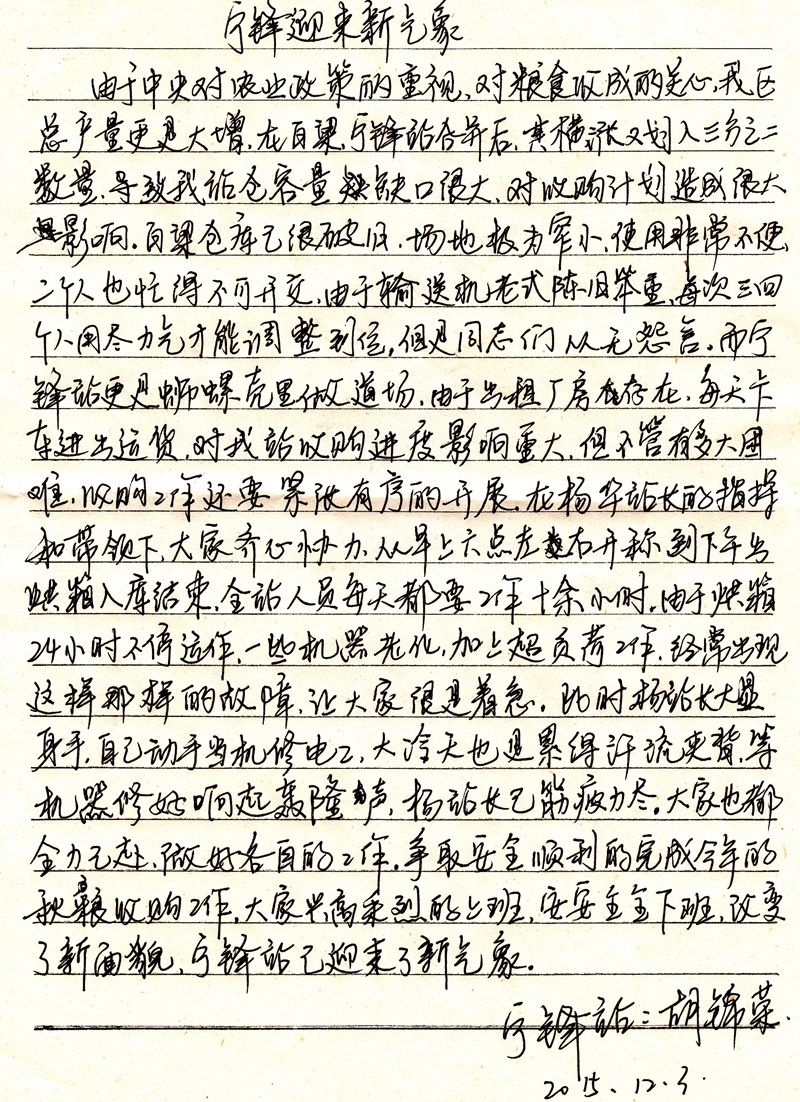 宁锋迎来新气象
由于中央对农业政策的重视、对粮食收成的关心,我区
总产量更是大增,在百梁、宁锋站合并后,其横涨又划入三分之二
数量,导致我站仓容量缺口很大,对收购计划造成很大
影响。百梁仓库已很破旧,场地极为窄小,使用非常不便,
二个人也忙得不可开交,由于输送机老式陈旧笨重,每次三四
个人用尽力气才能调整到位,但是同志们从无怨言。而宁
锋站更是螺蛳壳里做道场,由于出租厂房存在,每天卡
车进出运货,对我站收购进度影响重大,但不管有多大困
难,收购工作还要紧张有序的开展。在杨华站长的指挥
和带领下,大家齐心协力,从早上六点左右开称到下午出
烘箱入库结束,全站人员每天都要工作十余小时。由于烘箱
24小时不停运作,一些机器老化,加上超负荷工作,经常出现
这样那样的故障,让大家很是着急。此时杨站长大显
身手,自己动手当机修电工,大冷天也是累得汗流夹背,等
机器修好响起轰隆声,杨站长已筋疲力尽。大家也都
全力已赴,做好各自的工作。争取安全顺利的完成今年的
秋粮收购工作,大家兴高采烈的上班,安安全全下班,改变
了新面貌,宁锋站已迎来了新气象。
宁锋站:胡锦荣.
2015.12.3.